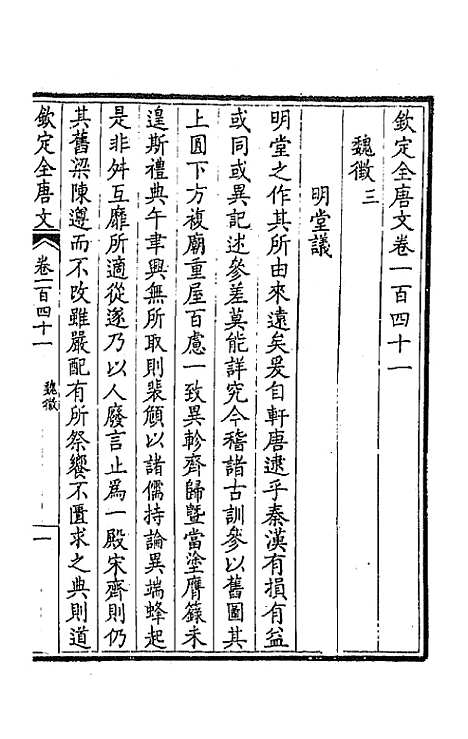 欽定全唐文卷一百四十一
魏徵三
明堂議
明堂之作其所由來遠矣爰自軒唐逮乎秦漢有損有益
或同或異記述參差莫能詳究今稽諸古訓參以舊圖其
上圓下方複廟重屋百慮一致異軫齊歸暨當塗膺籙未
遑斯禮典午聿興無所取則裴頠以諸儒持論異端蜂起
是非舛互靡所適從遂乃以人廢言止爲一殿宋齊則仍
其舊梁陳遵而不改雖嚴配有所祭饗不匱求之典則道
欽定全唐文
卷一百四十一
魏徵
一